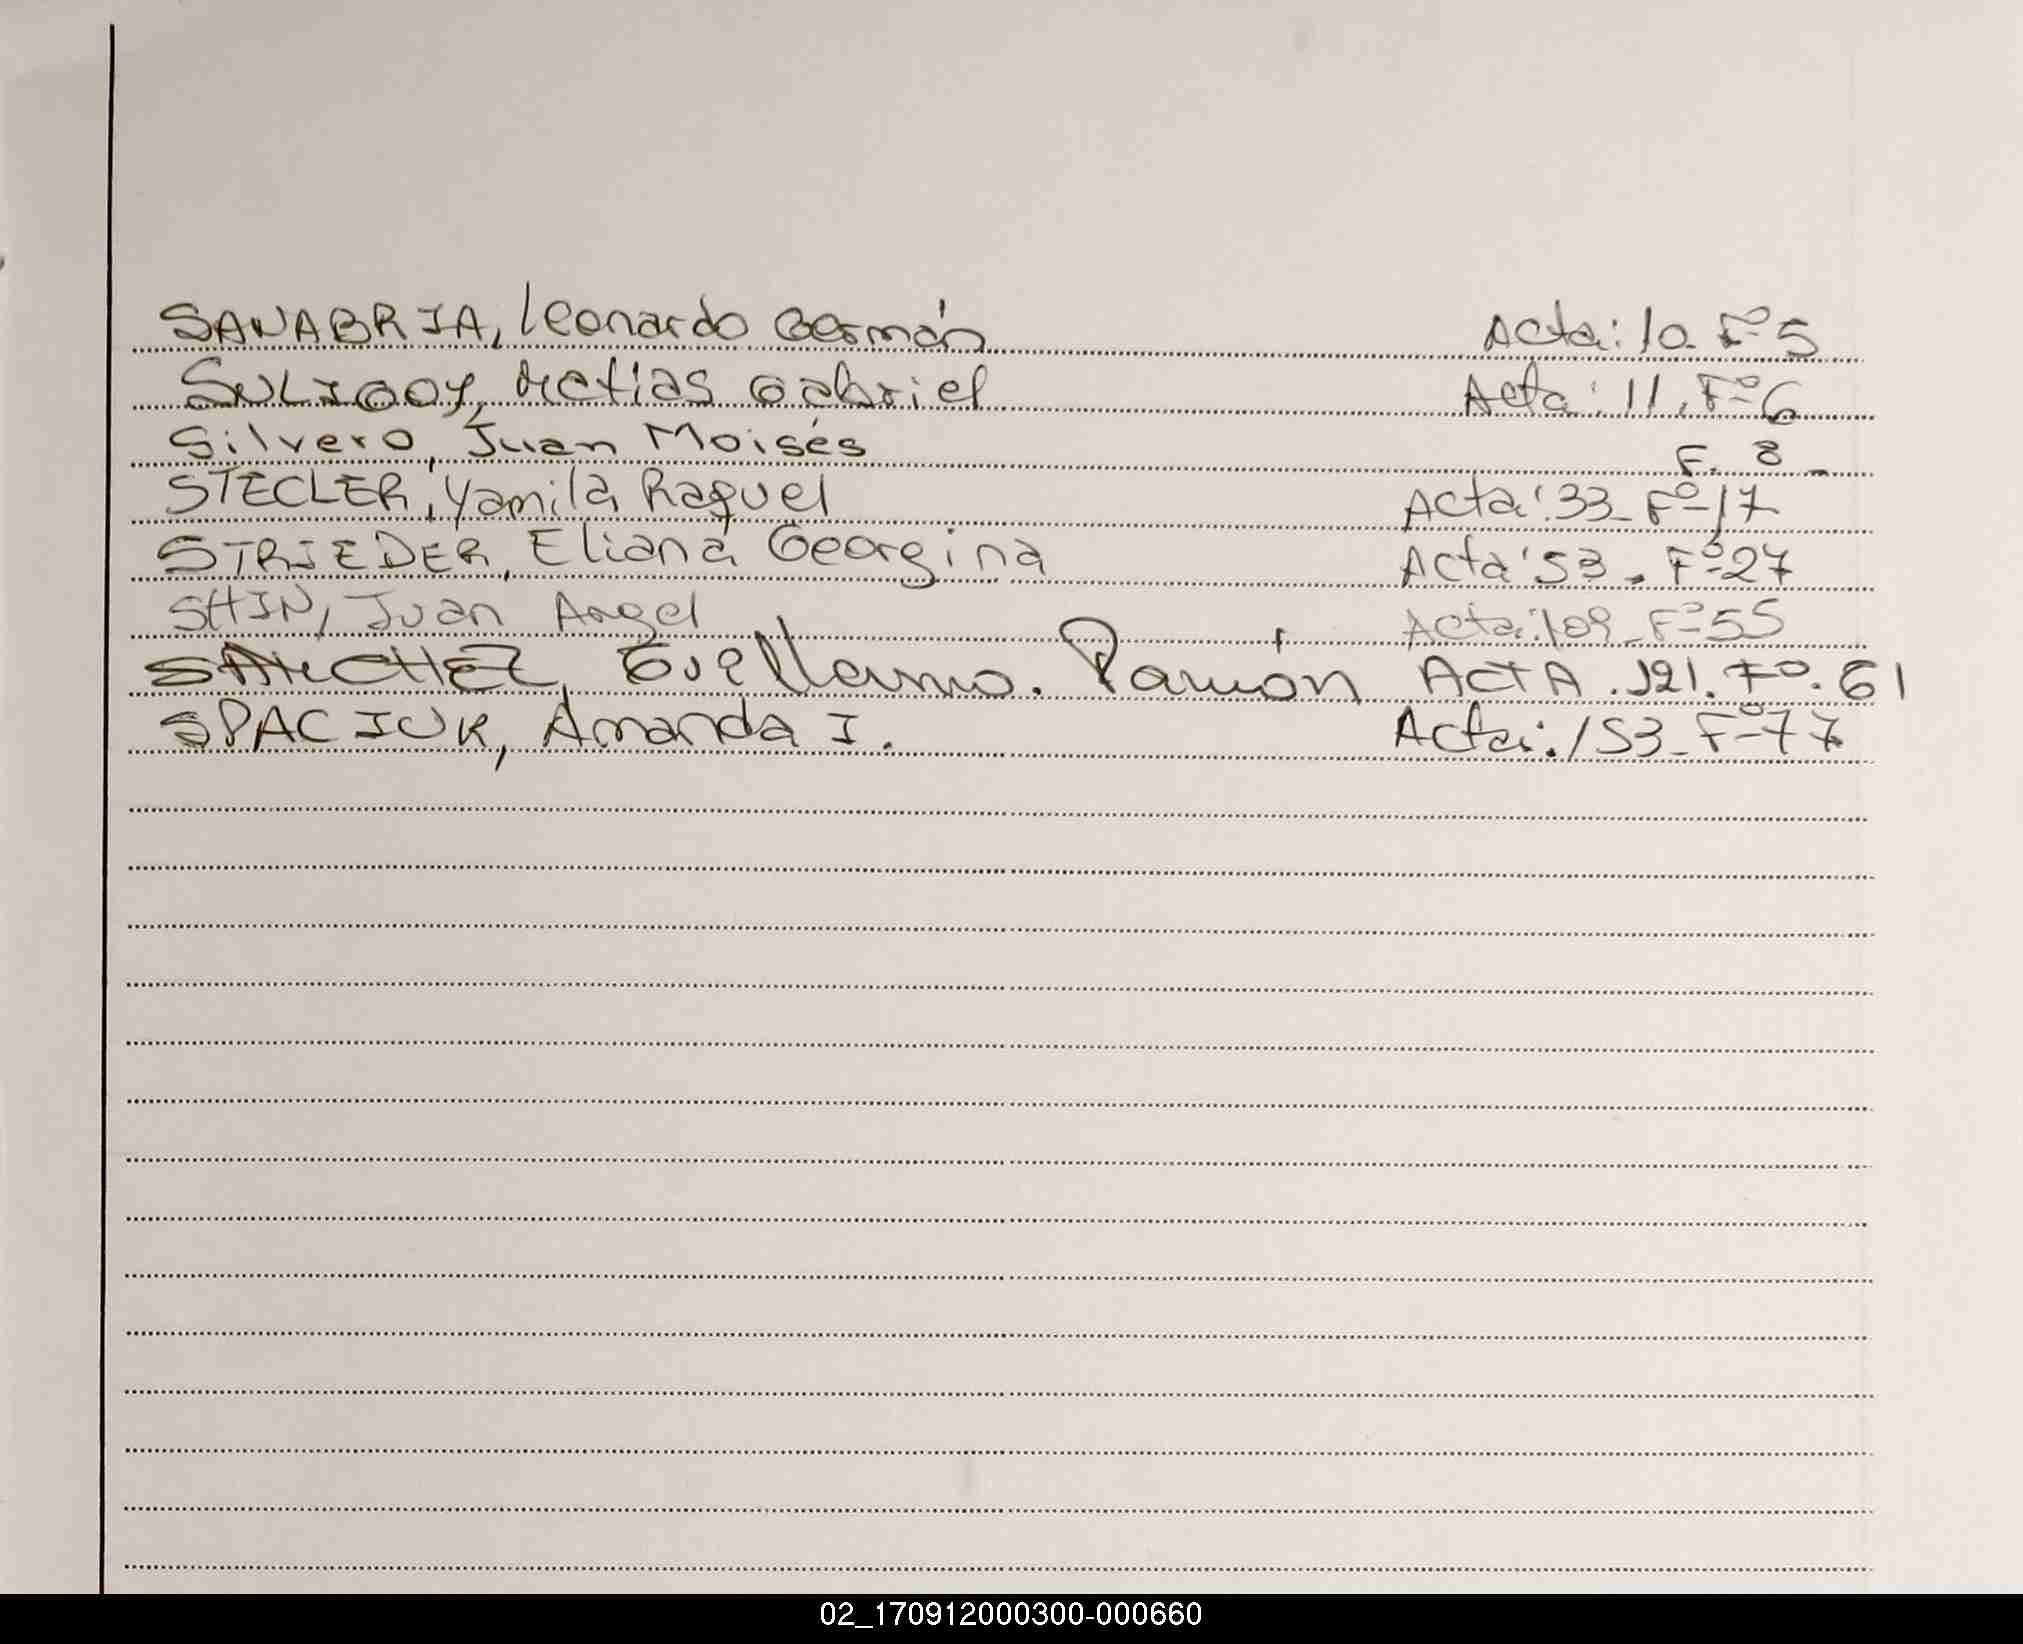 SANABRIA, Leonardo Germán Acta: 10 Fº 5
SULIGOY, Matias Gabriel Acta: 11. Fº 6
Silvero, Juan Moisés F. 8 -
STECLER, Yamila Raquel Acta: 33 - Fº 17
STRIEDER, Eliana Georgina Acta: 53 - Fº 27
SHIN, Juan Angel Acta: 109 - Fº 55
SANCHEZ, Guillermo. Ramón ACTA. 121. Fº. 61
SPACIUK, Amanda I. Acta: 153 - Fº 77
02_170912000300-000660